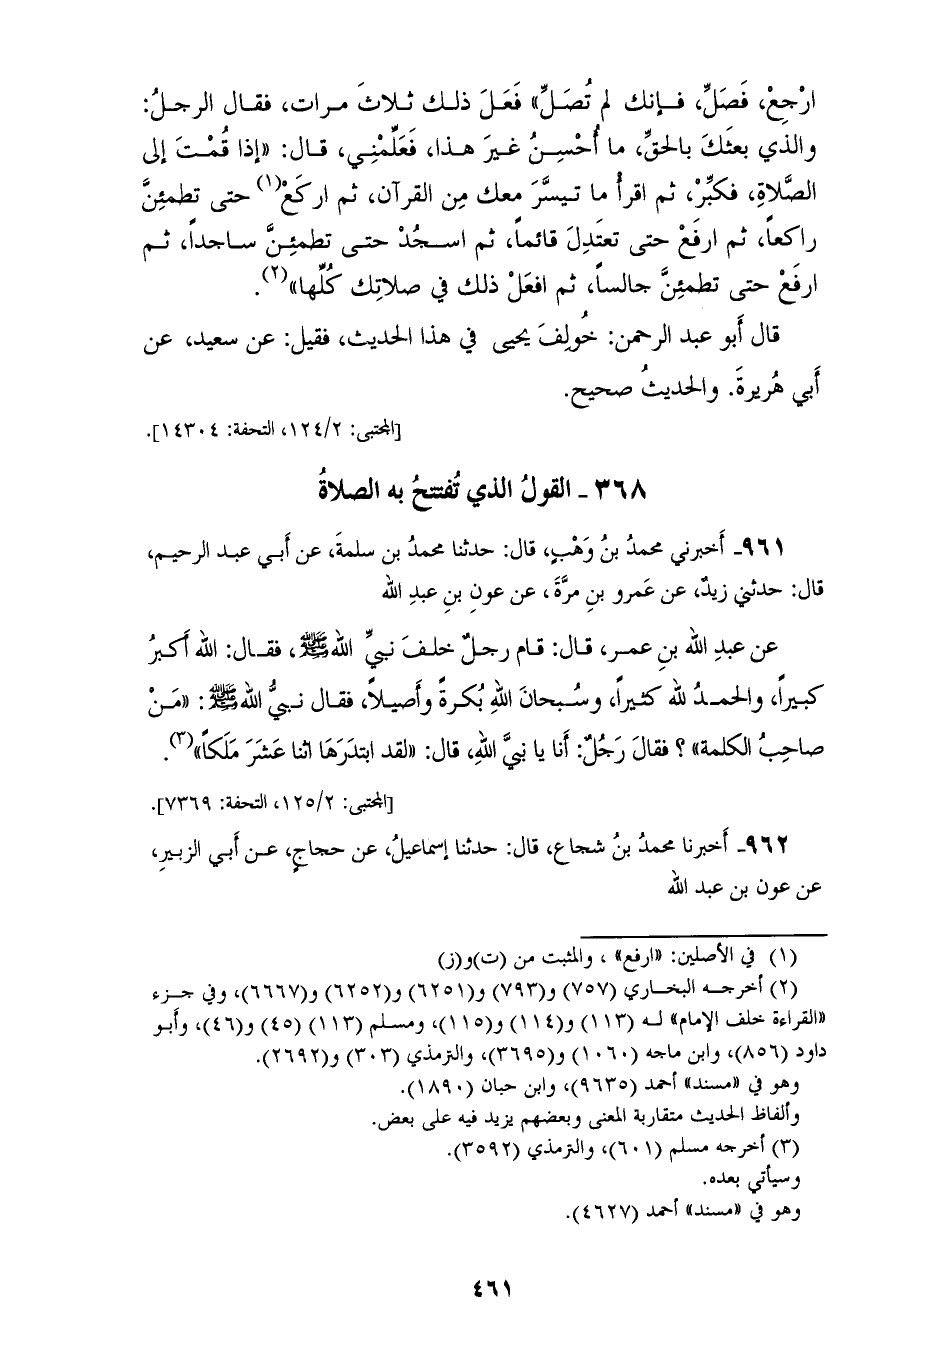 ارْجِعْ، فَصَلِّ، فـإنك لم تُصَلِّ» فَعَلَ ذلـك ثـلاثَ مـرات، فقـال الرجـلُ:
والذي بعثَكَ بالحقِّ، ما أُحْسِنُ غيرَ هـذا، فَعَلِّمْنِي، قال: «إذا قُمْتَ إلى
الصَّلاةِ، فكبِّرْ، ثم اقرأْ ما تيسَّرَ معك مِن القرآن، ثم اركَعْ(١) حتى تطمئِنَّ
راكعاً، ثم ارفَعْ حتى تعتَدِلَ قائماً، ثم اسـجُدْ حتـى تطمئِـنَّ سـاجداً، ثـم
ارفَعْ حتى تطمئِنَّ جالساً، ثم افعَلْ ذلك في صلاتِك كُلِّها»(٢).
قال أَبو عبد الرحمن: خُولِفَ يحيى في هذا الحديث، فقيل: عن سعيد، عن
أَبي هُريرةَ. والحديثُ صحيح.
[المجتبى: ١٢٤/٢، التحفة: ١٤٣٠٤].
٣٦٨ ـ القولُ الذي تُفتتحُ به الصلاةُ
٩٦١ـ أَخبرني محمدُ بنُ وَهْبٍ، قال: حدثنا محمدُ بن سلمةَ، عن أَبـي عبـد الرحيم،
قال: حدثني زيدٌ، عن عَمرو بنِ مرَّةَ، عن عونِ بنِ عبدِ الله
عن عبدِ الله بنِ عمـر، قـال: قـام رجـلٌ خلـفَ نبيِّ الله ﷺ، فقـال: الله أَكـبرُ
كبـيراً، والحمـدُ لله كثـيراً، وسُـبحانَ اللهِ بُكـرةً وأَصيـلاً، فقـال نـبيُّ الله ﷺ: «مَـنْ
صاحِبُ الكلمة» ؟ فقالَ رَجُلٌ: أنا يا نبيَّ اللهِ، قال: «لقد ابتدَرَهَا اثنا عَشَرَ مَلَكاً»(٣).
[المجتبى: ١٢٥/٢، التحفة: ٧٣٦٩].
٩٦٢ـ أَخبرنا محمدُ بنُ شجاع، قال: حدثنا إسماعيلُ، عن حجاجٍ، عـن أَبي الزبيرِ،
عن عون بن عبد الله
(١) في الأصلين: «ارفع» ، والمثبت من (ت)و(ز)
(٢) أخرجـه البخـاري (٧٥٧) و(٧٩٣) و(٦٢٥١) و(٦٢٥٢) و(٦٦٦٧)، وفي جـزء
«القراءة خلف الإمام» لـه (١١٣) و(١١٤) و(١١٥)، ومسلم (١١٣) (٤٥) و(٤٦)، وأبـو
داود (٨٥٦)، وابن ماجه (١٠٦٠) و(٣٦٩٥)، والترمذي (٣٠٣) و(٢٦٩٢).
وهو في «مسند» أحمد (٩٦٣٥)، وابن حبان (١٨٩٠).
وألفاظ الحديث متقاربة المعنى وبعضهم يزيد فيه على بعض.
(٣) أخرجه مسلم (٦٠١)، والترمذي (٣٥٩٢).
وسيأتي بعده.
وهو في «مسند» أحمد (٤٦٢٧).
٤٦١